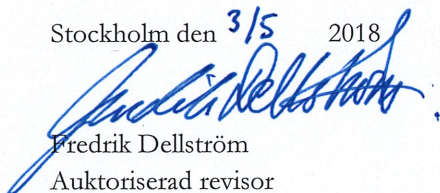 Stockholm den 3/5 2018
Fredrik Dellström
Fredrik Dellström
Auktoriserad revisor